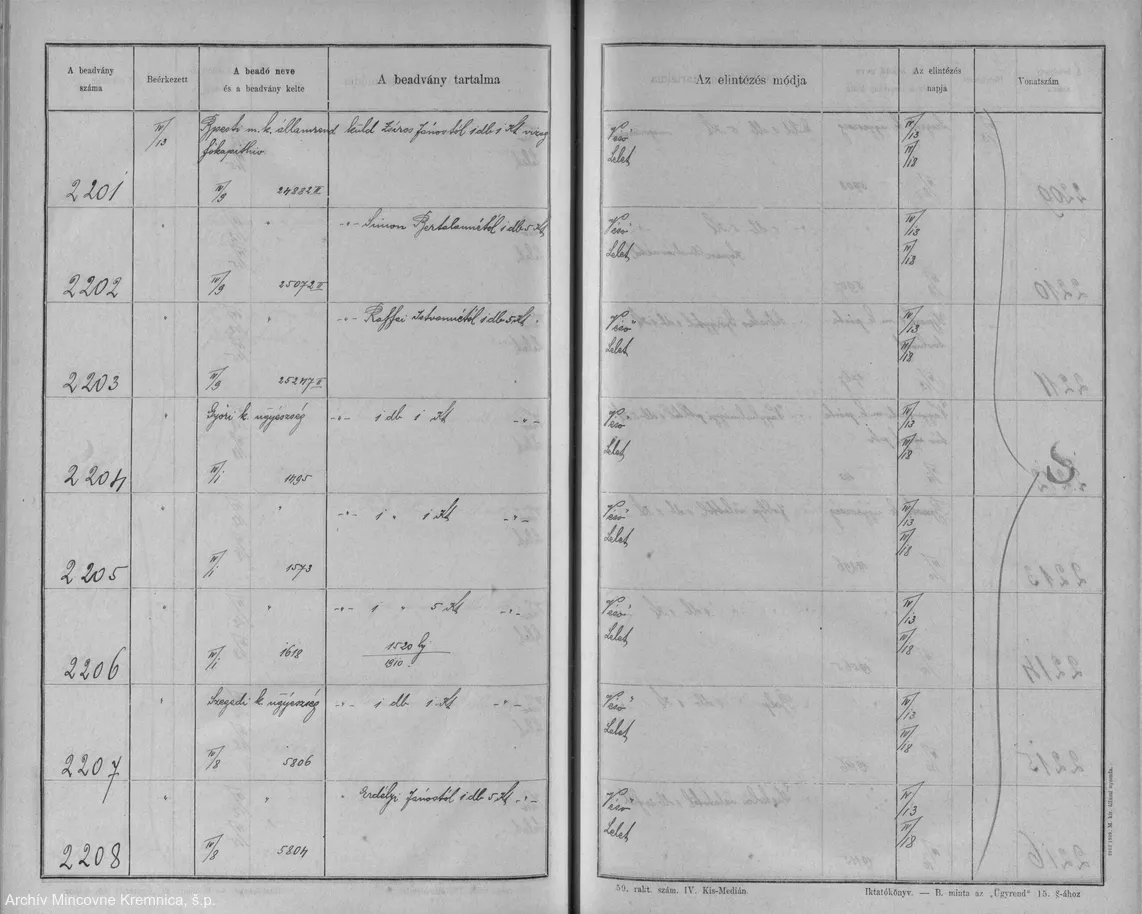 A beadvány száma
Beérkezett
A beadó neve és a beadvány kelte
A beadvány tartalma
Az elintézés módja
Az elintézés napja
Vonatszám
IV/13
Bpesti m. k. államrend
főkapitány
küld Zsiros Jánostól 1 db 1 Kt
2201
IV/9 24882 II
Véső
Lelet
IV/13
IV/18
2202
" "
-"- Simon Bertalannétól 1 db 5 Kt
IV/9 25072 II
Véső
Lelet
IV/13
IV/18
2203
" "
-"- Raffai Istvannétól 1 db 5 Kt "
IV/9 25247 II
Véső
Lelet
IV/13
IV/18
2204
" Győri k. ügyészség
-"- 1 db 1 Kt -"-
IV/1 1495
Véső
Lelet
IV/13
IV/18
2205
" "
-"- 1 " 1 Kt -"-
IV/1 1573
Véső
Lelet
IV/13
IV/18
2206
" "
-"- 1 " 5 Kt -"-
IV/1 1618
1520
1910
Véső
Lelet
IV/13
IV/18
2207
" Szegedi k. ügyészség
-"- 1 db 1 Kt -"-
IV/8 5806
Véső
Lelet
IV/13
IV/18
2208
" "
" Erdélyi Jánostól 1 db 5 Kt -"-
IV/8 5804
Véső
Lelet
IV/13
IV/18
59. rakt. szám. IV. Kis-Medián.
Iktatókönyv. — B. minta az „Ügyrend" 15. §-ához
Archív Mincovne Kremnica, š.p.